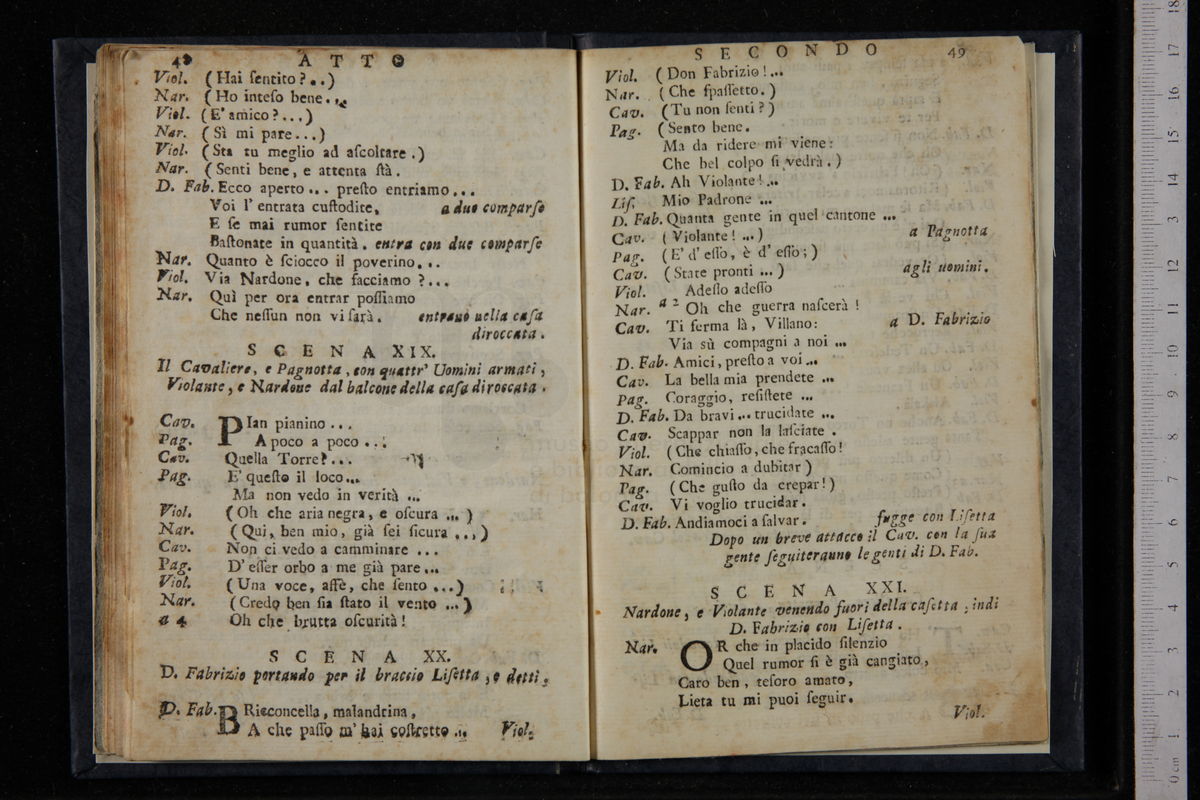 48 A T T O
Viol. (Hai ſentito?...)
Nar. (Ho inteſo bene...
Viol. (E' amico?...)
Nar. (Sì mi pare...)
Viol. (Sta tu meglio ad aſcoltare.)
Nar. (Senti bene, e attenta ſtà.
D. Fab. Ecco aperto... preſto entriamo...
Voi l'entrata cuſtodite, a due comparſe
E ſe mai rumor ſentite
Baſtonate in quantità. entra con due comparſe
Nar. Quanto è ſciocco il poverino...
Viol. Via Nardone, che facciamo?...
Nar. Quì per ora entrar poſſiamo
Che neſſun non vi ſarà. entrano nella caſa
diroccata.
S C E N A XIX.
Il Cavaliere, e Pagnotta, con quattr' Uomini armati,
Violante, e Nardone dal balcone della caſa diroccata.
Cav. PIan pianino...
Pag. A poco a poco...
Cav. Quella Torre?...
Pag. E' queſto il loco...
Ma non vedo in verità ...
Viol. (Oh che aria negra, e oſcura ...)
Nar. (Qui, ben mio, già ſei ſicura ...)
Cav. Non ci vedo a camminare ...
Pag. D' eſſer orbo a me già pare...
Viol. (Una voce, affè, che ſento ...)
Nar. (Credo ben ſia ſtato il vento ...)
a 4 Oh che brutta oſcurità!
S C E N A XX.
D. Fabrizio portando per il braccio Liſetta, e detti.
D. Fab. BRicconcella, malandrina,
A che paſſo m' hai coſtretto ... Viol.
S E C O N D O 49
Viol. (Don Fabrizio!...
Nar. (Che ſpaſſetto.)
Cav. (Tu non ſenti?)
Pag. (Sento bene.
Ma da ridere mi viene:
Che bel colpo ſi vedrà.)
D. Fab. Ah Violante!...
Liſ. Mio Padrone ...
D. Fab. Quanta gente in quel cantone ...
Cav. (Violante! ...) a Pagnotta
Pag. (E' d' eſſo, è d' eſſo;)
Cav. (State pronti ...) agli uomini.
Viol. Adeſſo adeſſo
Nar. a 2 Oh che guerra naſcerà!
Cav. Ti ferma là, Villano: a D. Fabrizio
Via sù compagni a noi ...
D. Fab. Amici, preſto a voi ...
Cav. La bella mia prendete ...
Pag. Coraggio, reſiſtete ...
D. Fab. Da bravi ... trucidate ...
Cav. Scappar non la laſciate .
Viol. (Che chiaſſo, che fracaſſo!
Nar. Comincio a dubitar)
Pag. (Che guſto da crepar!)
Cav. Vi voglio trucidar.
D. Fab. Andiamoci a ſalvar. fugge con Liſetta
Dopo un breve attacco il Cav. con la ſua
gente ſeguiteranno le genti di D. Fab.
S C E N A XXI.
Nardone, e Violante venendo fuori della caſetta, indi
D. Fabrizio con Liſetta.
Nar. OR che in placido ſilenzio
Quel rumor ſi è già cangiato,
Caro ben, teſoro amato,
Lieta tu mi puoi ſeguir.
Viol.